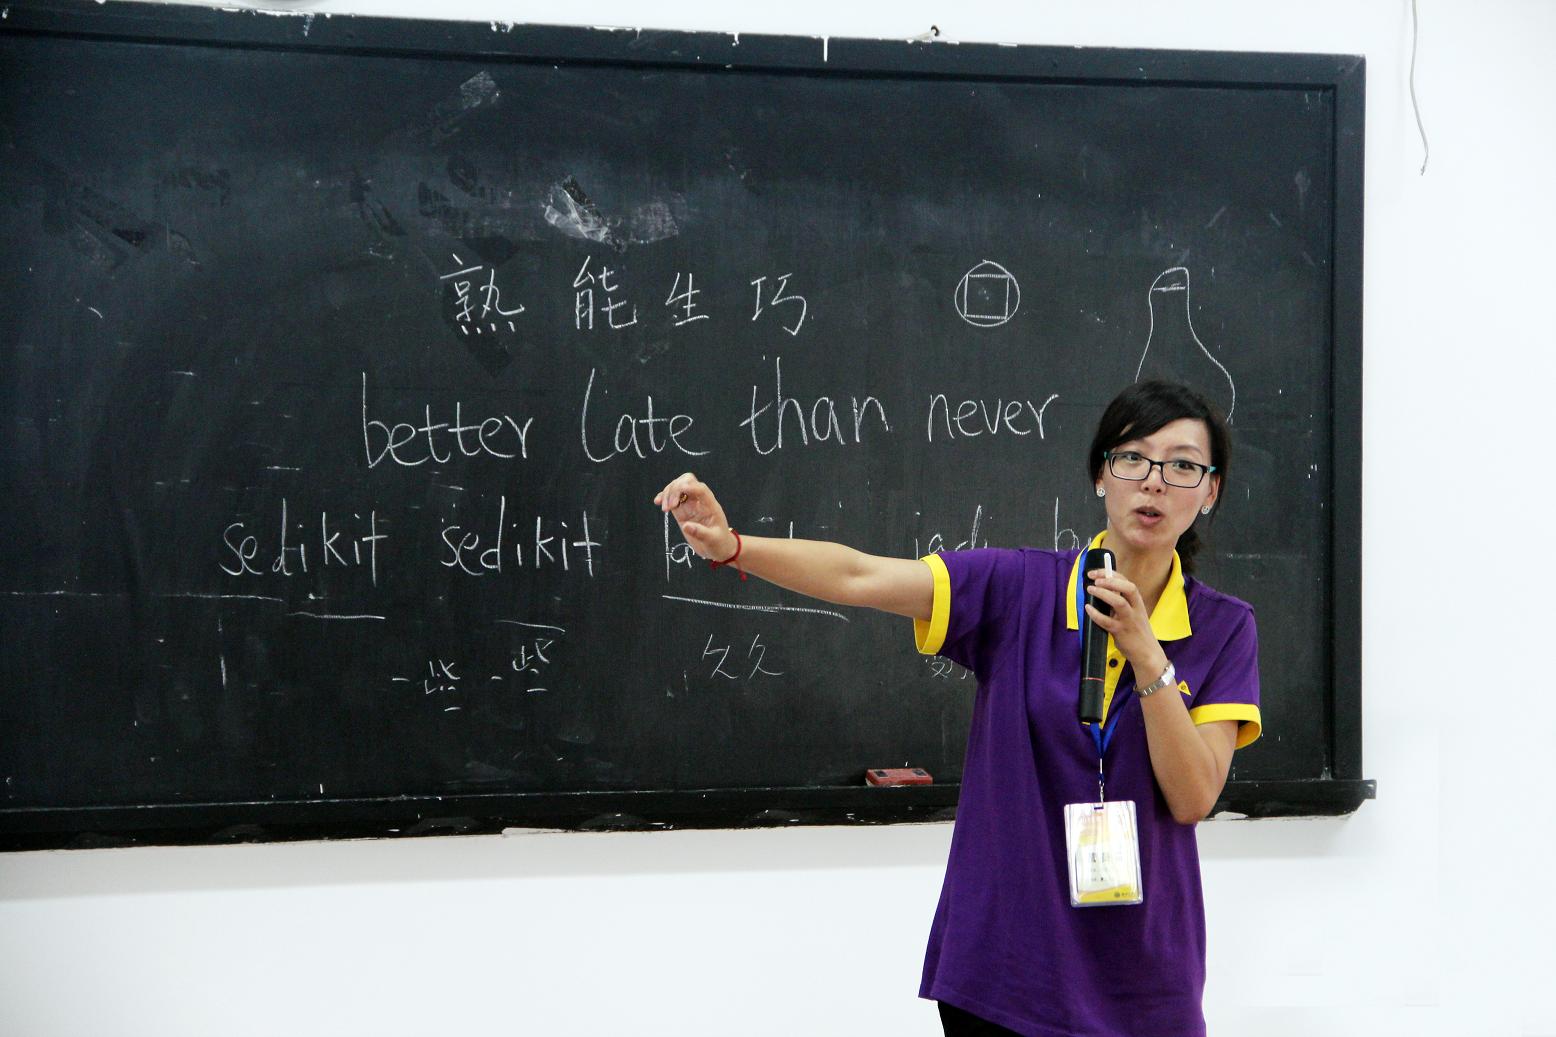 熟能生巧
better late than never
sedikit sedikit
一些 一些 久久